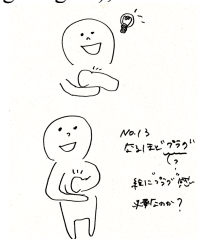 No.13
なるほど"プラグ"
?
緑に"プラグ"感
必要なのか?